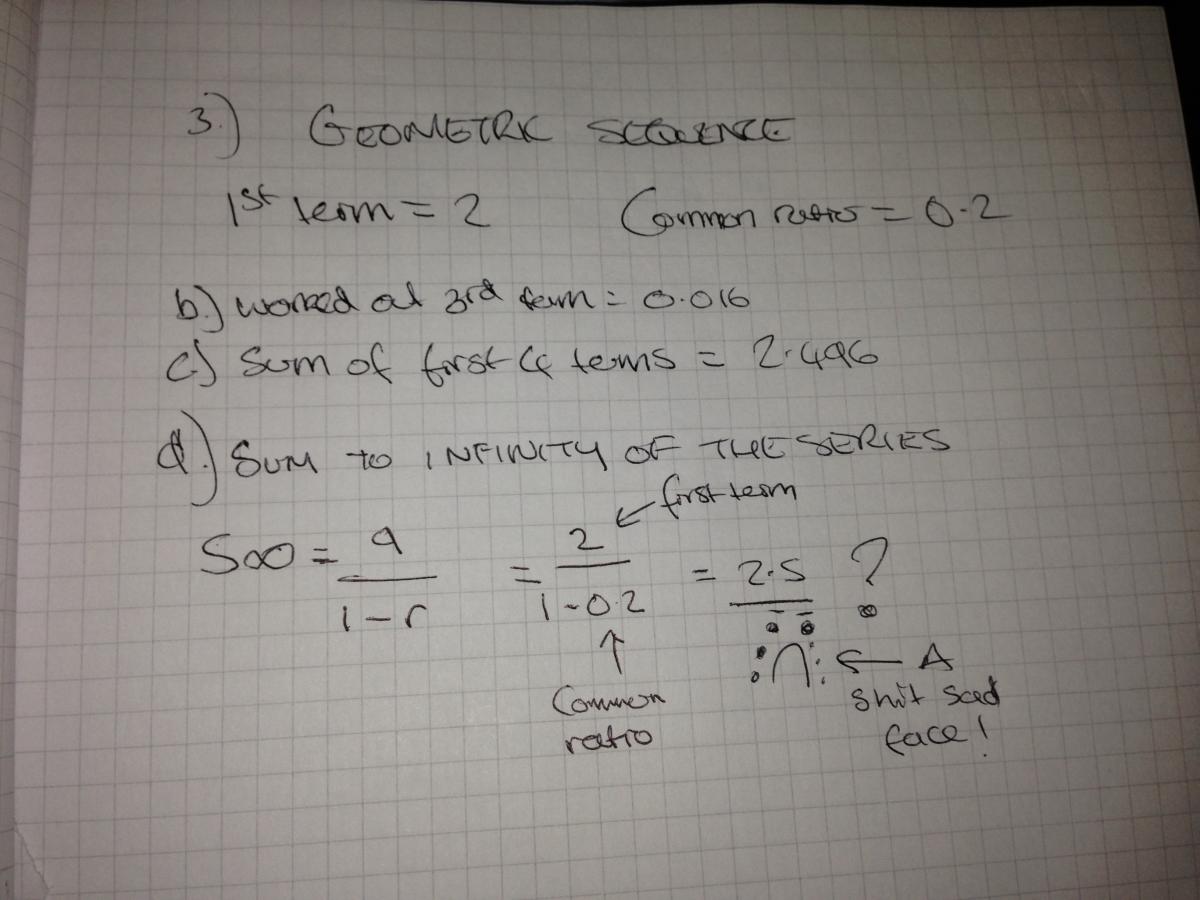 3.) GEOMETRIC SEQUENCE
1st term = 2 Common ratio = 0.2
b.) worked out 3rd term = 0.016
c.) Sum of first 4 terms = 2.496
d.) SUM TO INFINITY OF THE SERIES
first term
S∞ = a / 1 - r = 2 / 1 - 0.2 = 2.5 ?
Common ratio
A
shit sad
face!